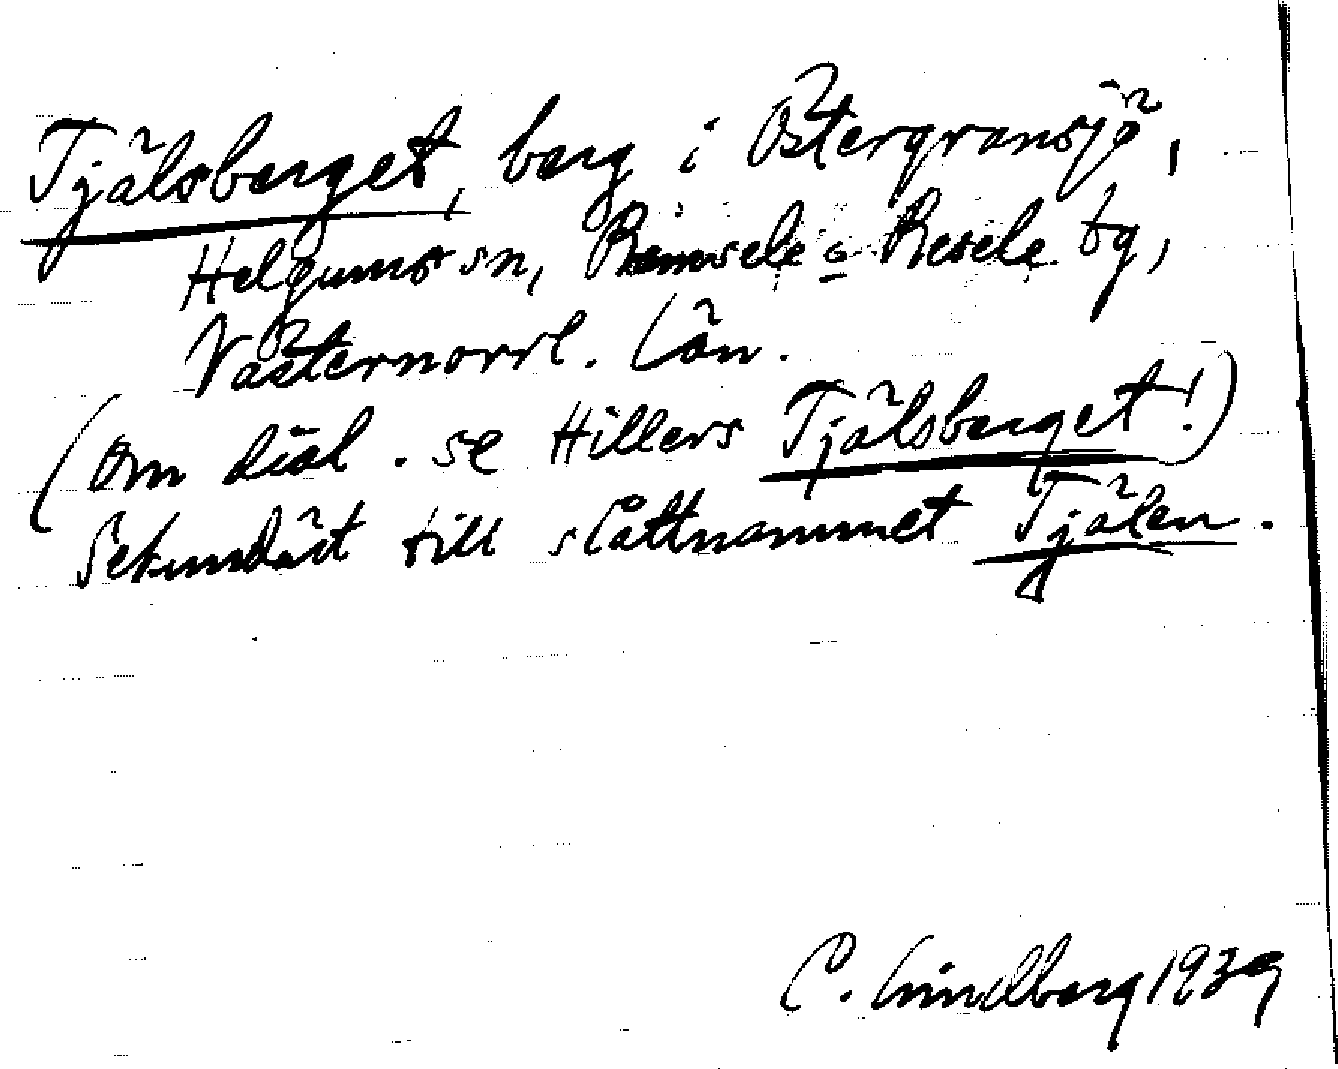 Tjälsberget, berg i Östergransjö,
Helgums sn, Ramsele o Resele tg,
Västernorrl. län.
(Om dial. se Hillers Tjälsberget!)
Sekundärt till slåttnamnet Tjälen.
C. Lindberg 1939